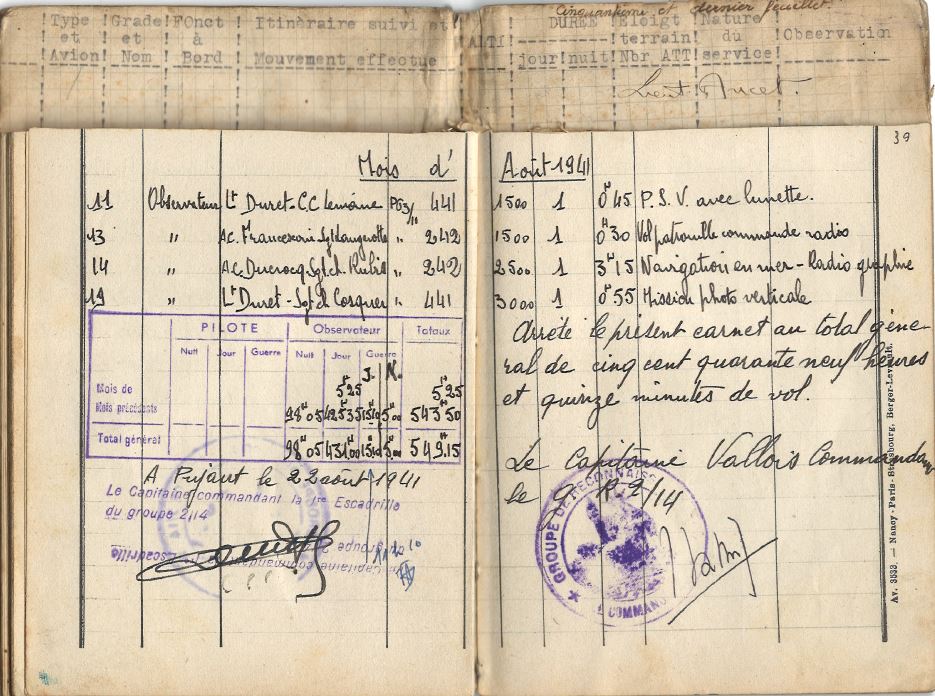 Cinquantième et dernier feuillet.
Type et Avion ! Grade et Nom ! FOnct à Bord ! Itinèraire suivi et Mouvement effectue ! ALTI ! DUREE jour ! nuit ! Eloigt terrain Nbr ATT ! Nature du service ! Observation
Lieut
39
Mois d' Août 1941
11 Observateur Lt Duret - C.C Lemoine 441 1500 1 0H45 P.S.V. avec lunette.
13 " A.C. " 242 1500 1 0H30 Vol patrouille commande radio
14 " A.C. Ducrocq - Sgt.ch. Rubis " 242 2500 1 3H15 Navigation en mer - Radio graphie
19 " Lt Duret - Sgt ch Cosquer " 441 3000 1 0H55 Mission photo verticale
PILOTE Observateur Totaux
Nuit Jour Guerre Nuit Jour Guerre
J. N.
Mois de 5H25 5H25
Mois précédents 98H05 425H35 15H10 5H00 543H50
Total général 98H05 431H00 15H10 5H00 549H15
Arrêté le présent carnet au total géné-
ral de cinq cent quarante neuf heures
et quinze minutes de vol.
A le 22 août 1941
Le Capitaine commandant la 1re Escadrille
du groupe 2/14
Le Capitaine commandant Escadrille
du groupe
Le Capitaine Vallois Commandant
le G.R. 2/14
GROUPE DE RECONNAISSANCE
COMMAND
Av. 3533. — Nancy-Paris-Strasbourg, Berger-Levrault.